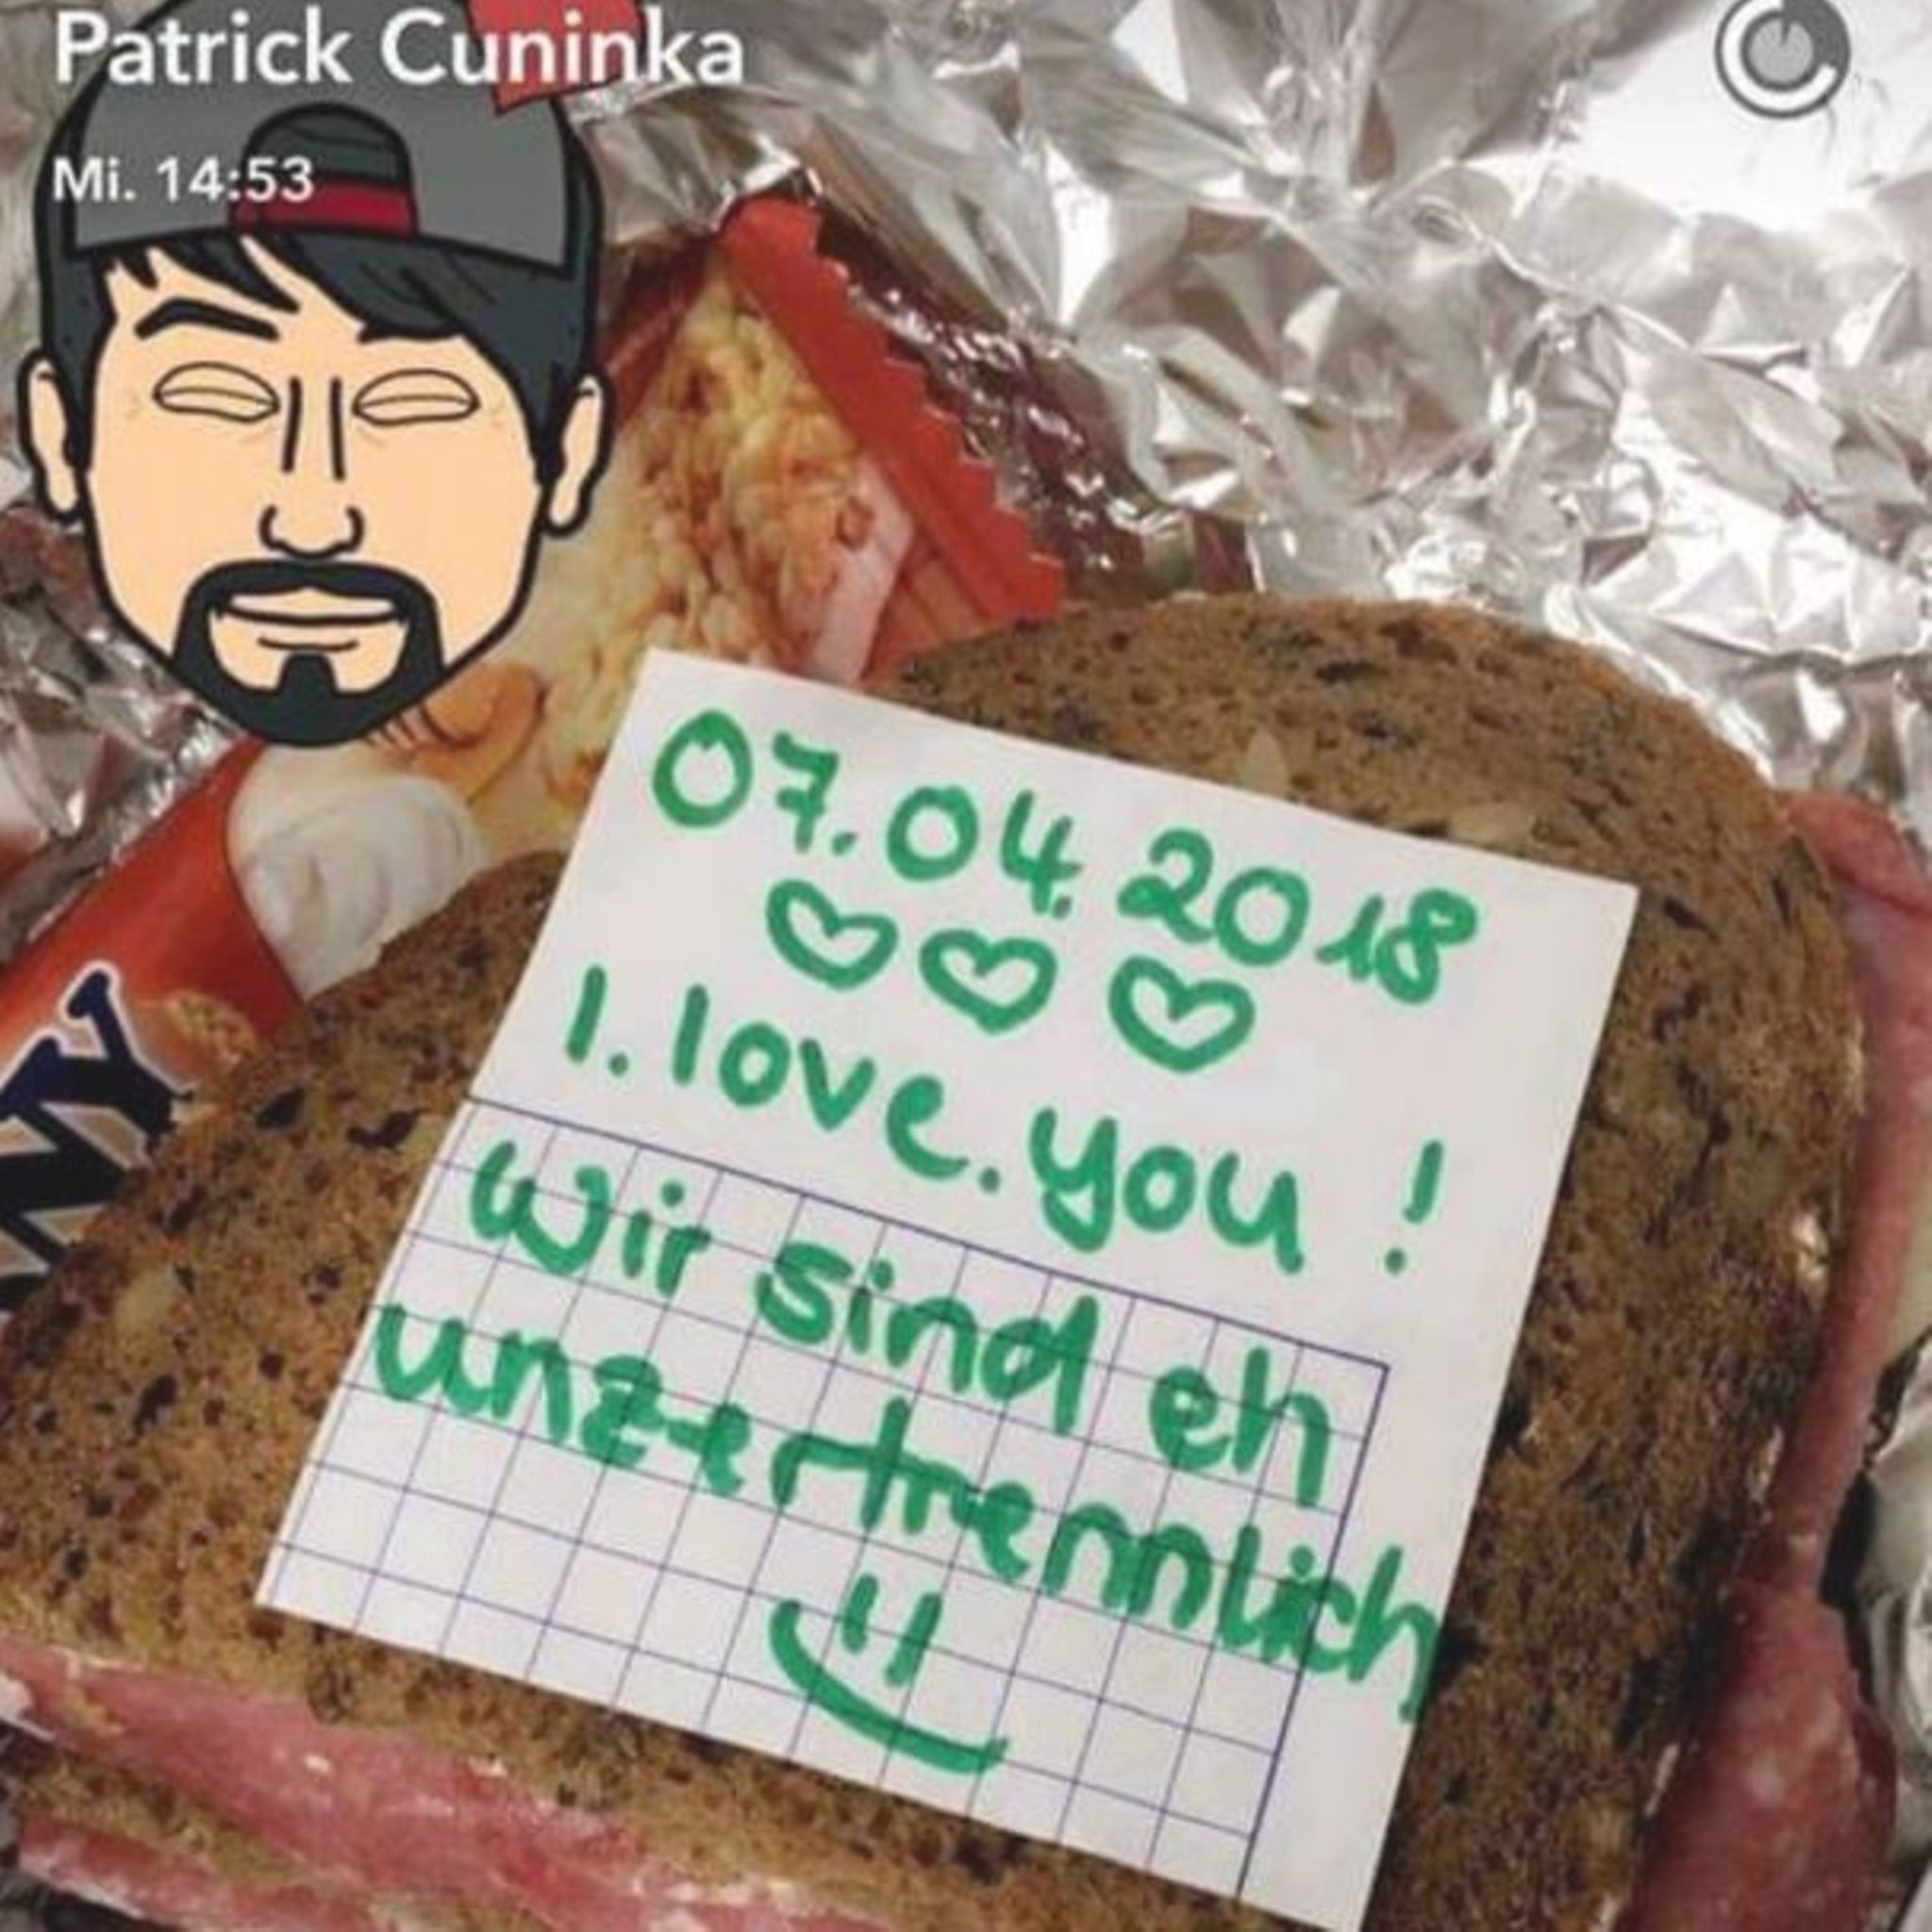 Patrick Cuninka
Mi. 14:53
07.04.2018
♡ ♡ ♡
I. love. you !
wir sind eh
unzertrennlich
NY